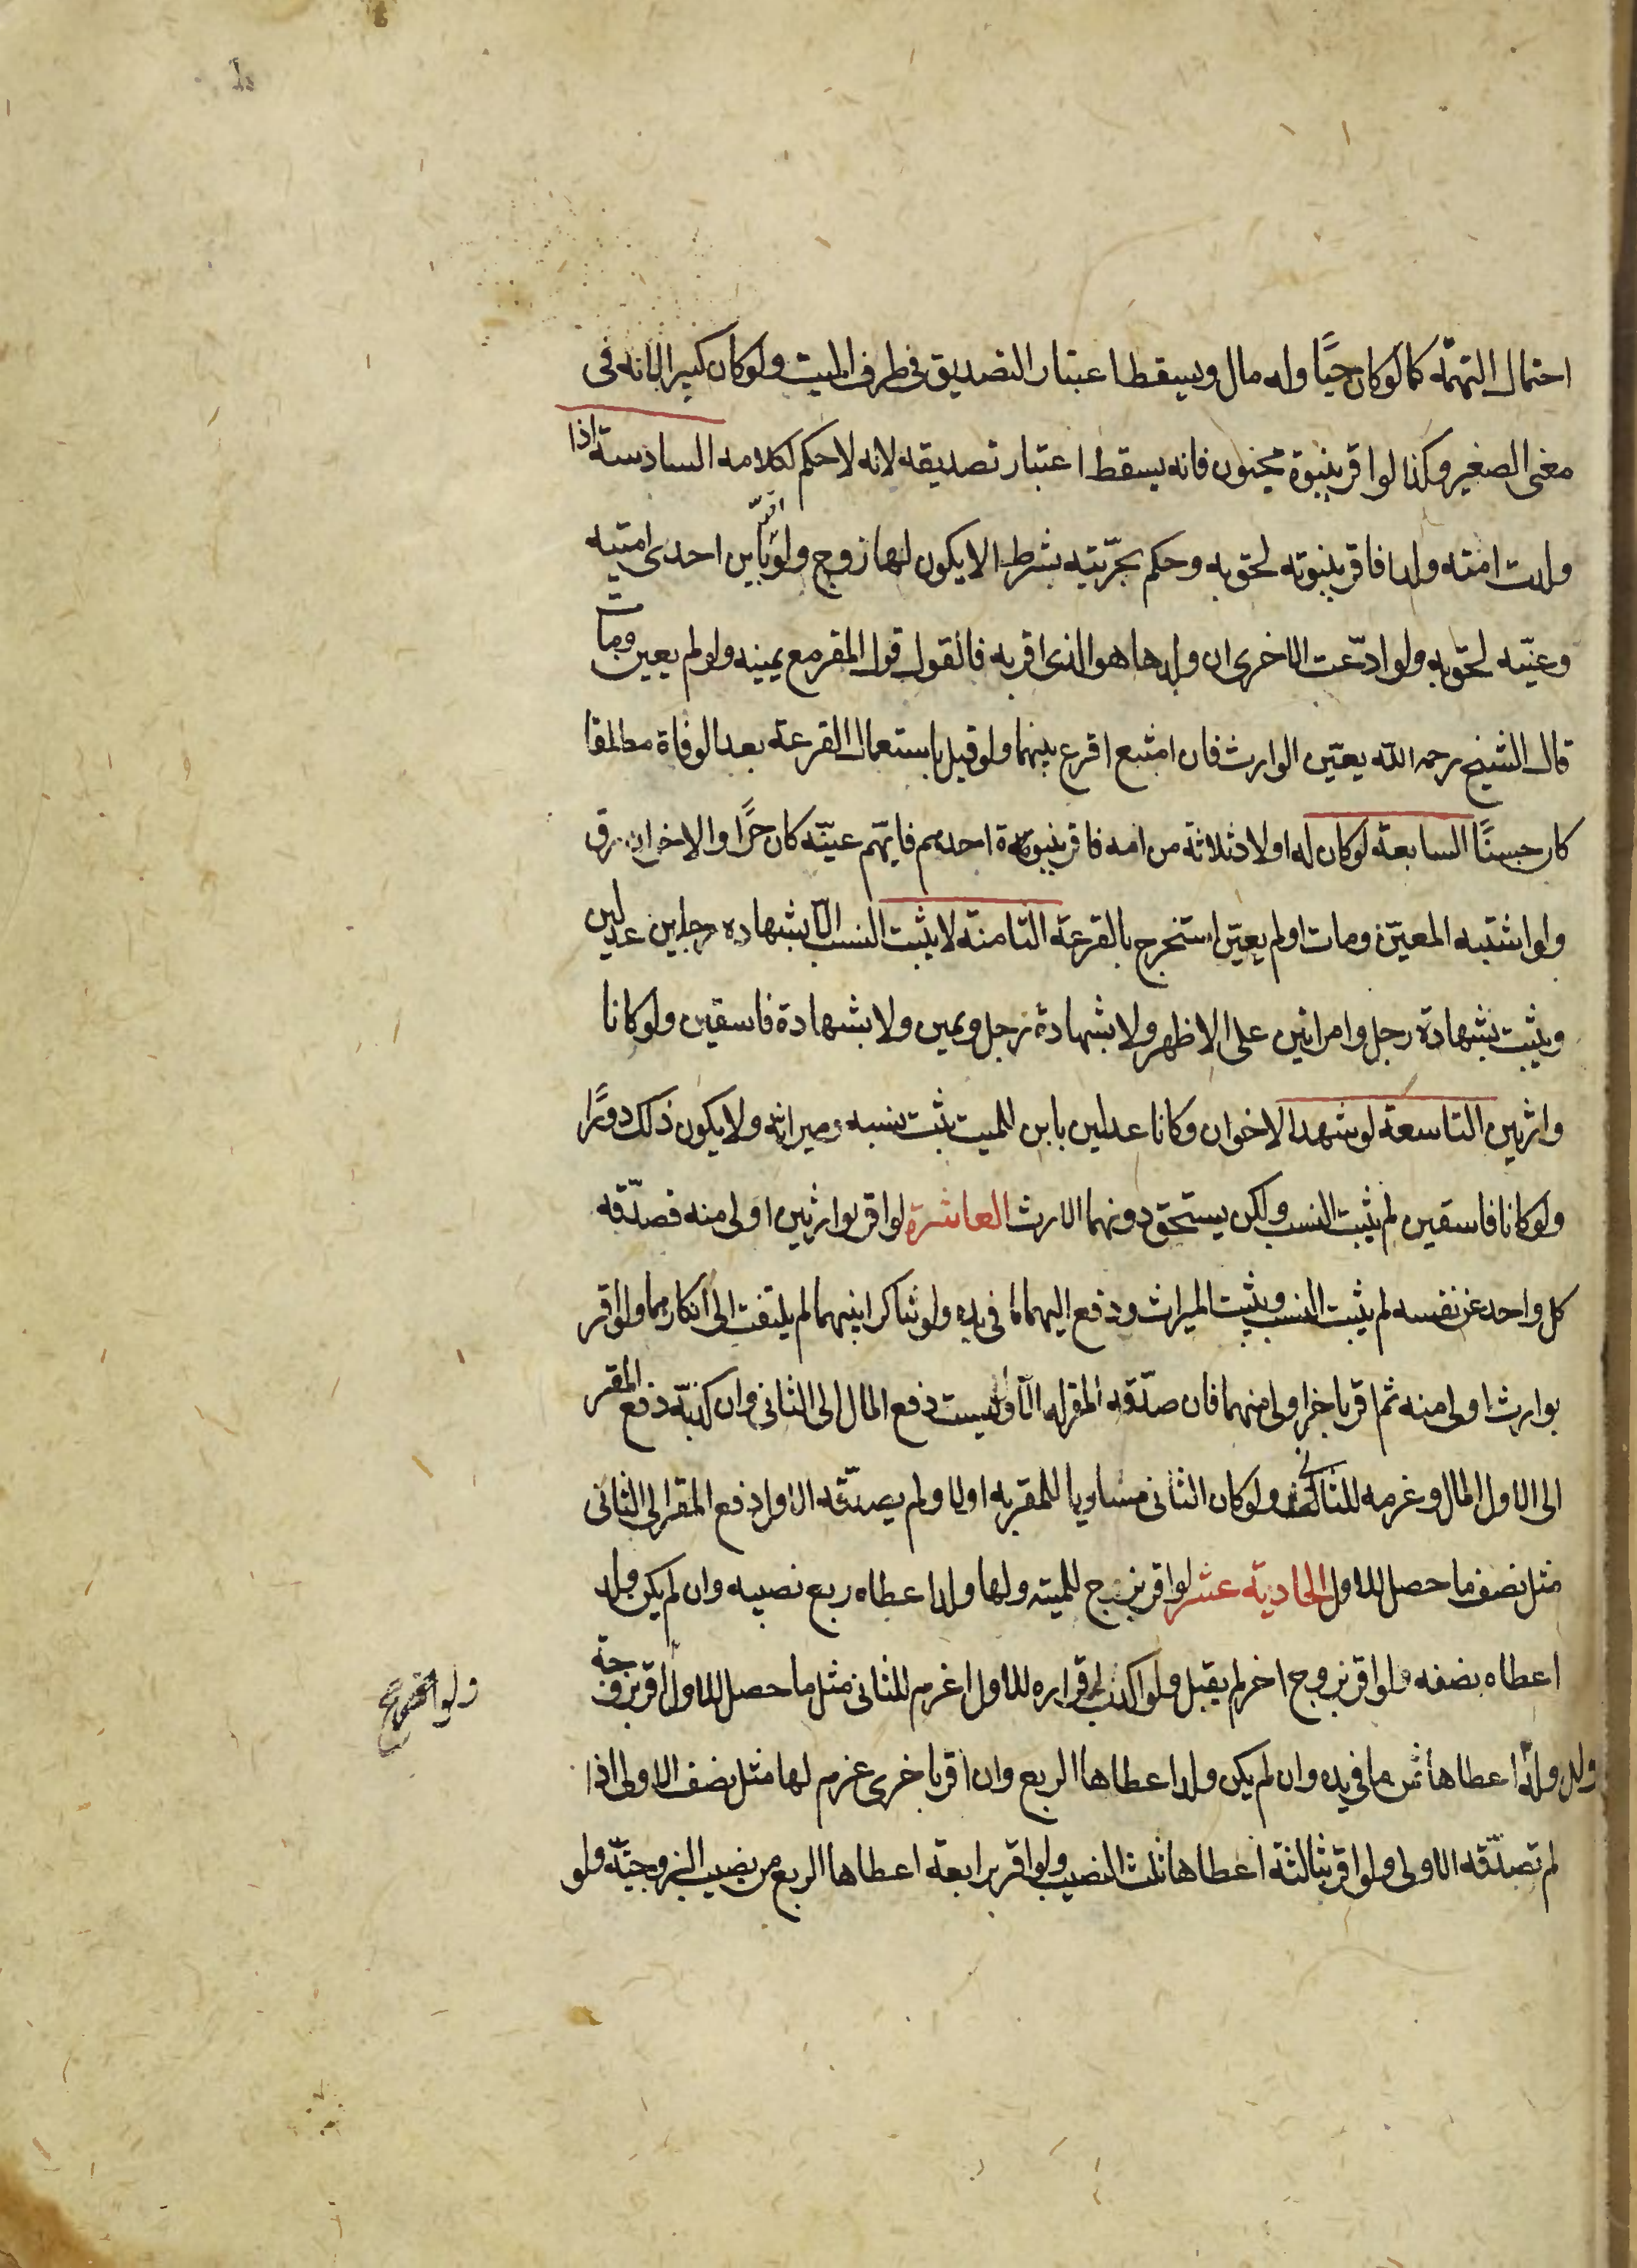 احتمال التهمة كما لو كان حيًّا وله مال ويسقط اعتبار التصديق في طرف الميت ولو كان كبيرا لانه في
معنى الصغير وكذا لو اقر ببنوة مجنون فانه يسقط اعتبار تصديقه لانه لا حكم لكلامه السادسة اذا
ولدت امته ولدا فاقر ببنوته لحق به وحكم بحرّيته بشرط الا يكون لها زوج ولو اقرّ بابن احدى امتيه
وعيّنه لحق به ولو ادّعت الاخرى ان ولدها هو الذى اقر به فالقول قول المقر مع يمينه ولو لم يعين ومات
قال الشيخ رحمه الله يعيّن الوارث فان امتنع اقرع بينهما ولو قيل باستعمال القرعة بعد الوفاة مطلقا
كان حسنًا السابعة لو كان له اولاد ثلاثة من امه فاقر ببنوة احدهم فايهم عيّنه كان حرًّا والاخران رق
ولو اشتبه المعيّن ومات او لم يعيّن استخرج بالقرعة الثامنة لا يثبت النسب الّا بشهاده رجلين عدلين
ويثبت بشهادة رجل وامراتين على الاظهر ولا بشهادة رجل ويمين ولا بشهادة فاسقين ولو كانا
وارثين التاسعة لو شهد الاخوان وكانا عدلين بابن للميت ثبت نسبه وميراثه ولا يكون ذلك دورًا
ولو كانا فاسقين لم يثبت النسب ولكن يستحق دونهما الارث العاشرة لو اقر بوارثين اولى منه فصدّقه
كل واحد عن نفسه لم يثبت النسب ويثبت الميراث ودفع اليهما ما فى يده ولو تناكرا بينهما لم يلتفت الى انكارهما ولو اقر
بوارث اولى منه ثم اقر باخر اولى منهما فان صدّقه المقر له الاول دفع المال الى الثانى وان كذبّه دفع المقر
الى الاول المال وغرمه للثانى ولو كان الثانى مساويا للمقر به اولا ولم يصدّقه الاول دفع المقر الى الثانى
مثل نصف ما حصل للاول الحادية عشر لو اقر بزوج للميته ولها ولد اعطاه ربع نصيبه وان لم يكن ولد
اعطاه نصفه ولو اقر بزوج اخر لم يقبل ولو اكذب اقراره للاول اغرم للثانى مثل ما حصل للاول اقر بزوجة
وله ولد اعطاها ثمن ما فى يده وان لم يكن ولد اعطاها الربع وان اقر باخرى غرم لها مثل نصف الاولى اذا
لم تصدّقه الاولى ولو اقر بثالثة اعطاها ثلث النصيب ولو اقر برابعة اعطاها الربع من نصيب الزوجيّة ولو
ولو